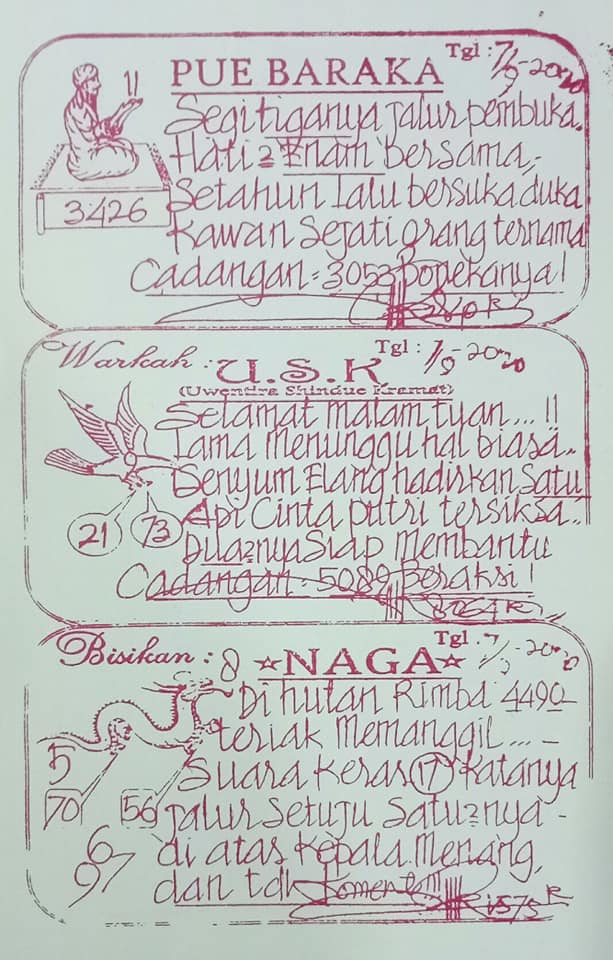 PUE BARAKA
Tgl : 7/9-2020
11
Segitiganya jalur pembuka.
Hati2 Enam Bersama,-
Setahun lalu bersuka duka
3.426
Kawan Sejati orang ternama
Cadangan = 3053 Bonekanya!
Warkah : U.S.K
Tgl : 7/9-2020
(Uwentira Shindue Kramat)
Selamat malam tuan...!!
Lama menunggu hal biasa..
Senyum Elang hadirkan Satu
Api Cinta putri tersiksa..
21 73
Dua2nya Siap Membantu
Cadangan : 5089 Beraksi!
Bisikan : 8 ☆NAGA☆
Tgl : 7/9-2020
Di hutan Rimba 4490-
teriak Memanggil...-
5
Suara Keras 17 Katanya
70 56
jalur Setuju Satu2nya-
67
di atas Kepala Menang,
97
dan tdk